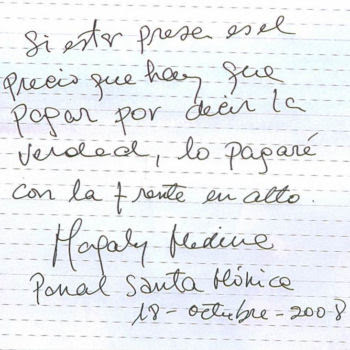 Si estar presa es el
precio que hay que
pagar por decir la
verdad, lo pagaré
con la frente en alto.
Magaly Medina
Penal Santa Mónica
18 - octubre - 2008